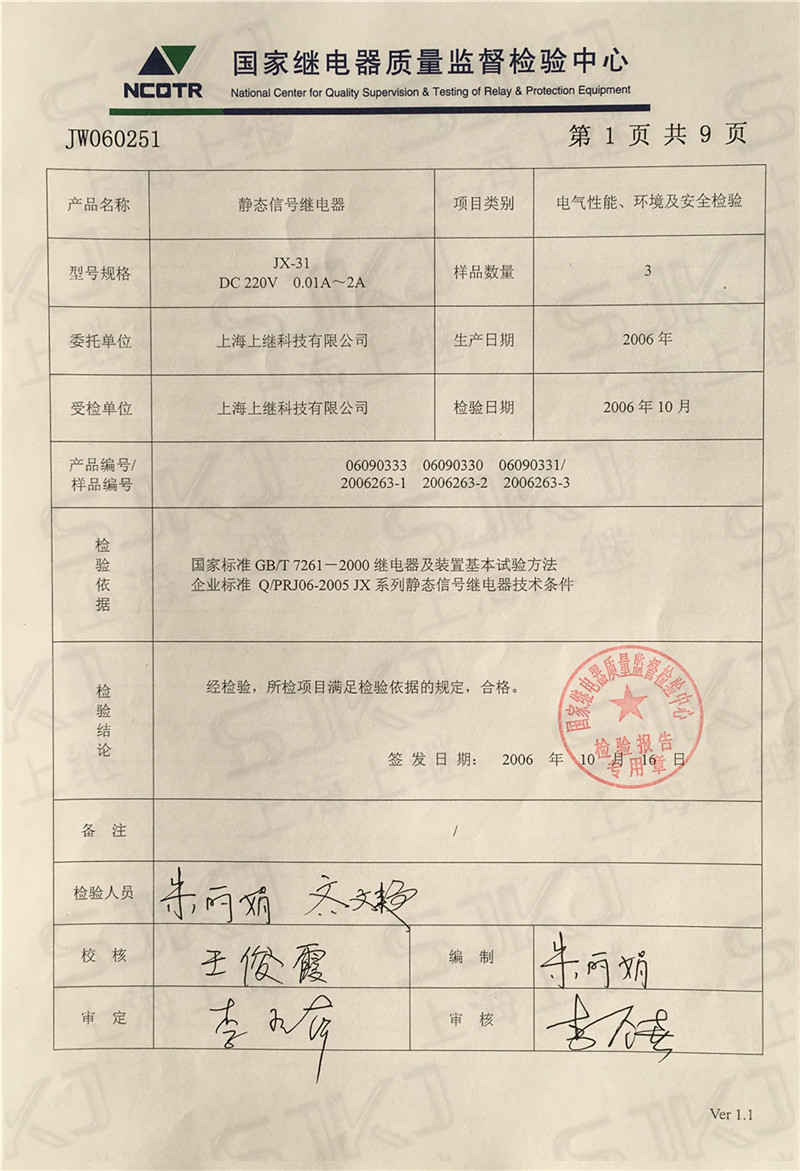 NCQTR
国家继电器质量监督检验中心
National Center for Quality Supervision & Testing of Relay & Protection Equipment
JW060251
第 1 页 共 9 页
产品名称 静态信号继电器 项目类别 电气性能、环境及安全检验
型号规格 JX-31
DC 220V 0.01A～2A 样品数量 3
委托单位 上海上继科技有限公司 生产日期 2006 年
受检单位 上海上继科技有限公司 检验日期 2006 年 10 月
产品编号/
样品编号
06090333 06090330 06090331/
2006263-1 2006263-2 2006263-3
检验依据
国家标准 GB/T 7261－2000 继电器及装置基本试验方法
企业标准 Q/PRJ06-2005 JX 系列静态信号继电器技术条件
检验结论
经检验，所检项目满足检验依据的规定，合格。
签 发 日 期： 2006 年 10 月 16 日
国家继电器质量监督检验中心
检验报告
专用章
备 注 /
检验人员 朱丽娟
校 核 王俊霞 编 制 朱丽娟
审 定 审 核
Ver 1.1
SJKJ
上海上继